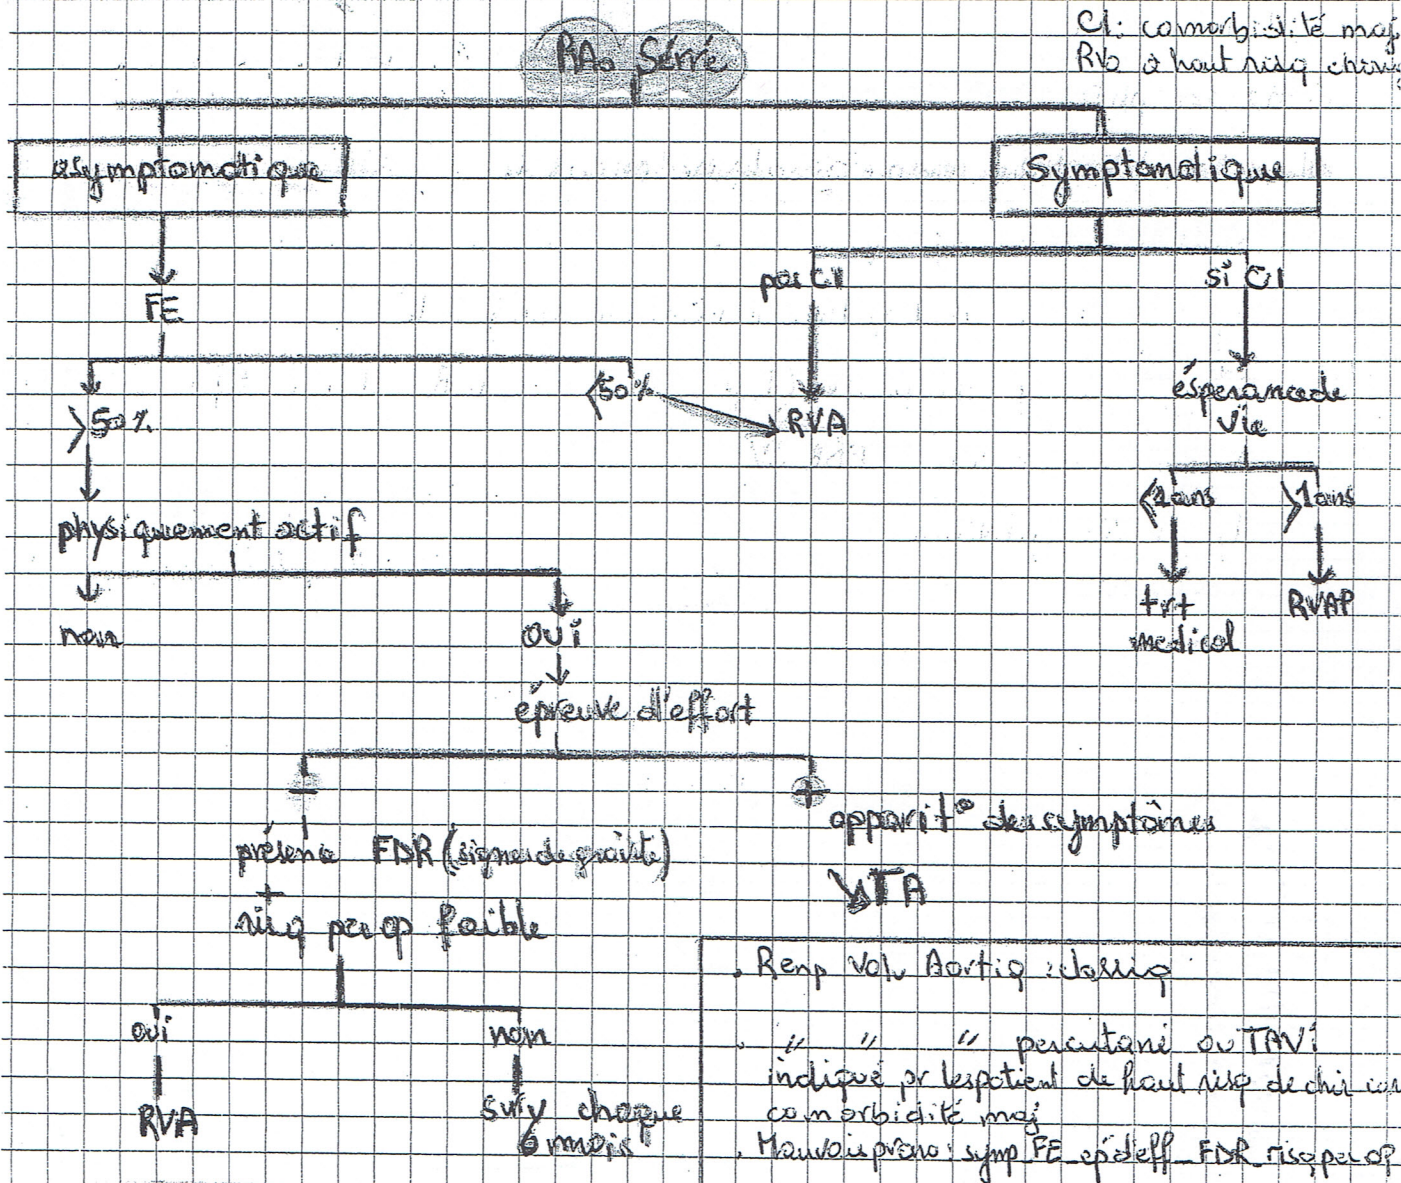 RAo Sérré
CI: comorbisité maj
RVo à haut risq chirur
asymptomatique
Symptomatique
pas CI
si CI
FE
>50%
<50%
RVA
ésperance de
vie
<1ans
>1ans
trt
medical
RVAP
physiquement actif
non
oui
épreuve d'effort
-
+
apparit° des symptômes
↘TA
présence FDR (signes de gravité)
+
risq per op faible
oui
non
RVA
surv chaque
6 mois
. Remp Valv Aortiq : classiq
. " " " percutané ou TAVI
indiqué pr les patient de haut risq de chir
comorbidité maj
. Mauvais prono : symp_FE_ep d'eff_FDR_risq per op